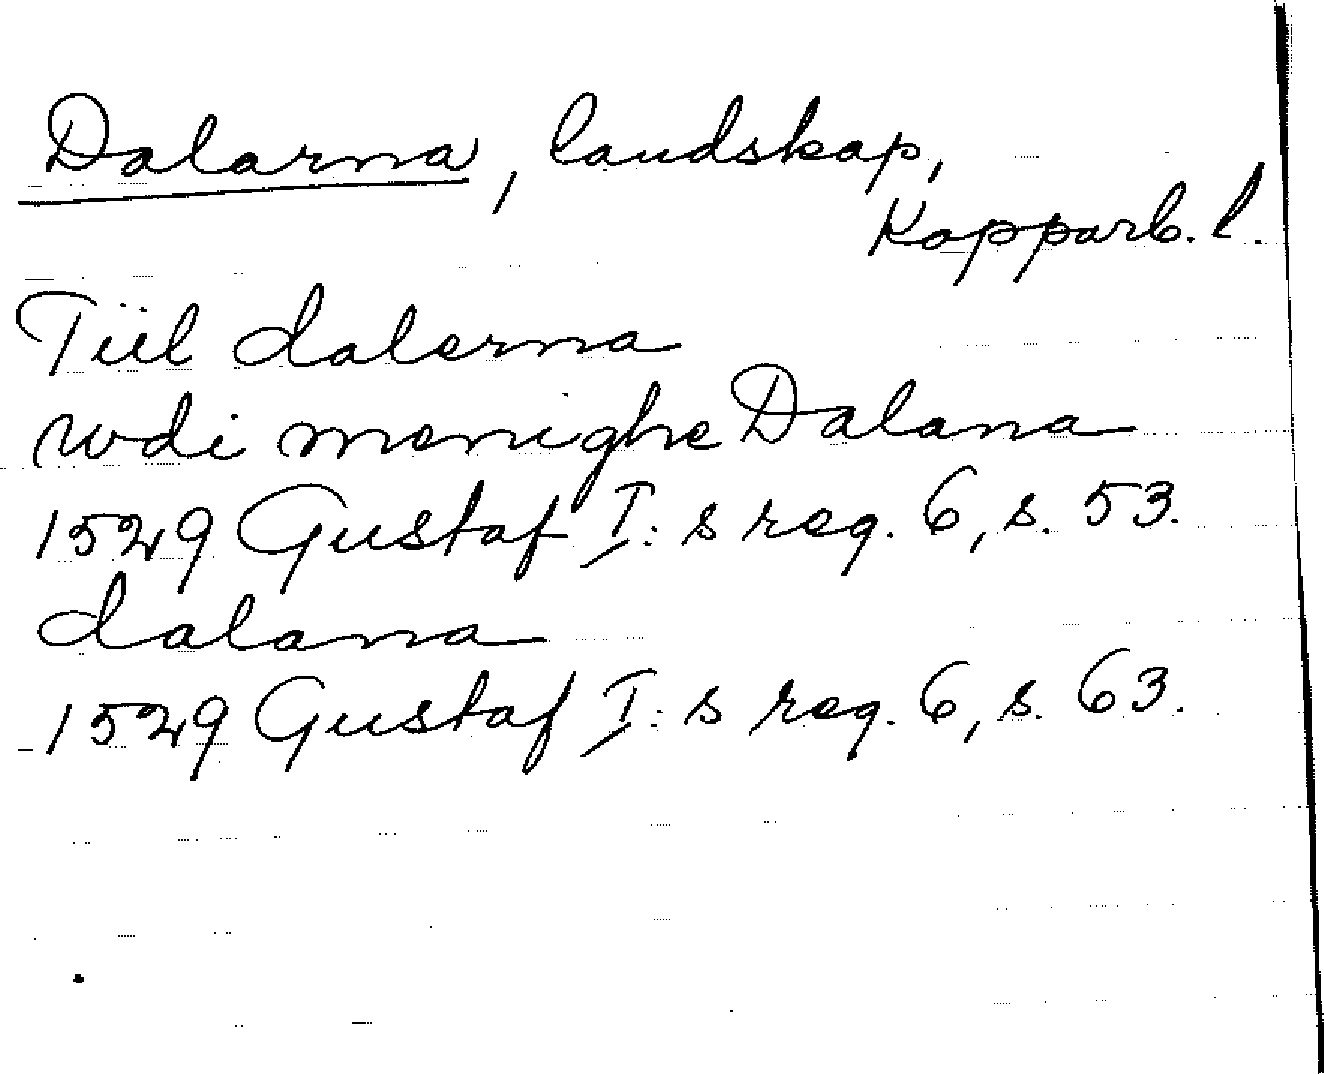 Dalarna, landskap,
Kopparb. l.
Tiil dalerna
wdi menighe Dalana
1529 Gustaf I:s reg. 6, s. 53.
dalana
1529 Gustaf I:s reg. 6, s. 63.